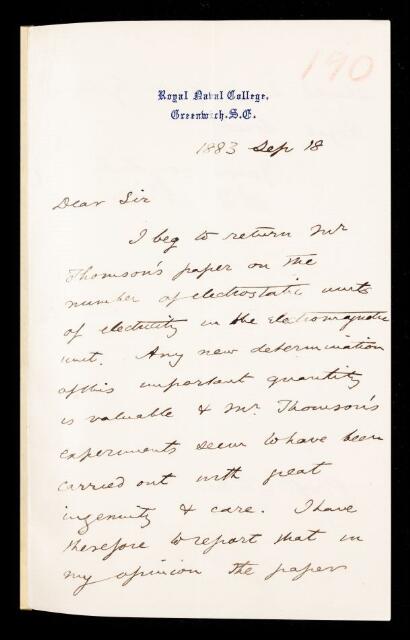 190
Royal Naval College,
Greenwich. S.E.
1883 Sep 18
Dear Sir
I beg to return Mr
Thomson's paper on the
number of electrostatic units
of electricity in the electromagnetic
unit. Any new determination
of this important quantity
is valuable & Mr. Thomson's
experiments seem to have been
carried out with great
ingenuity & care. I have
therefore to report that in
my opinion the paper